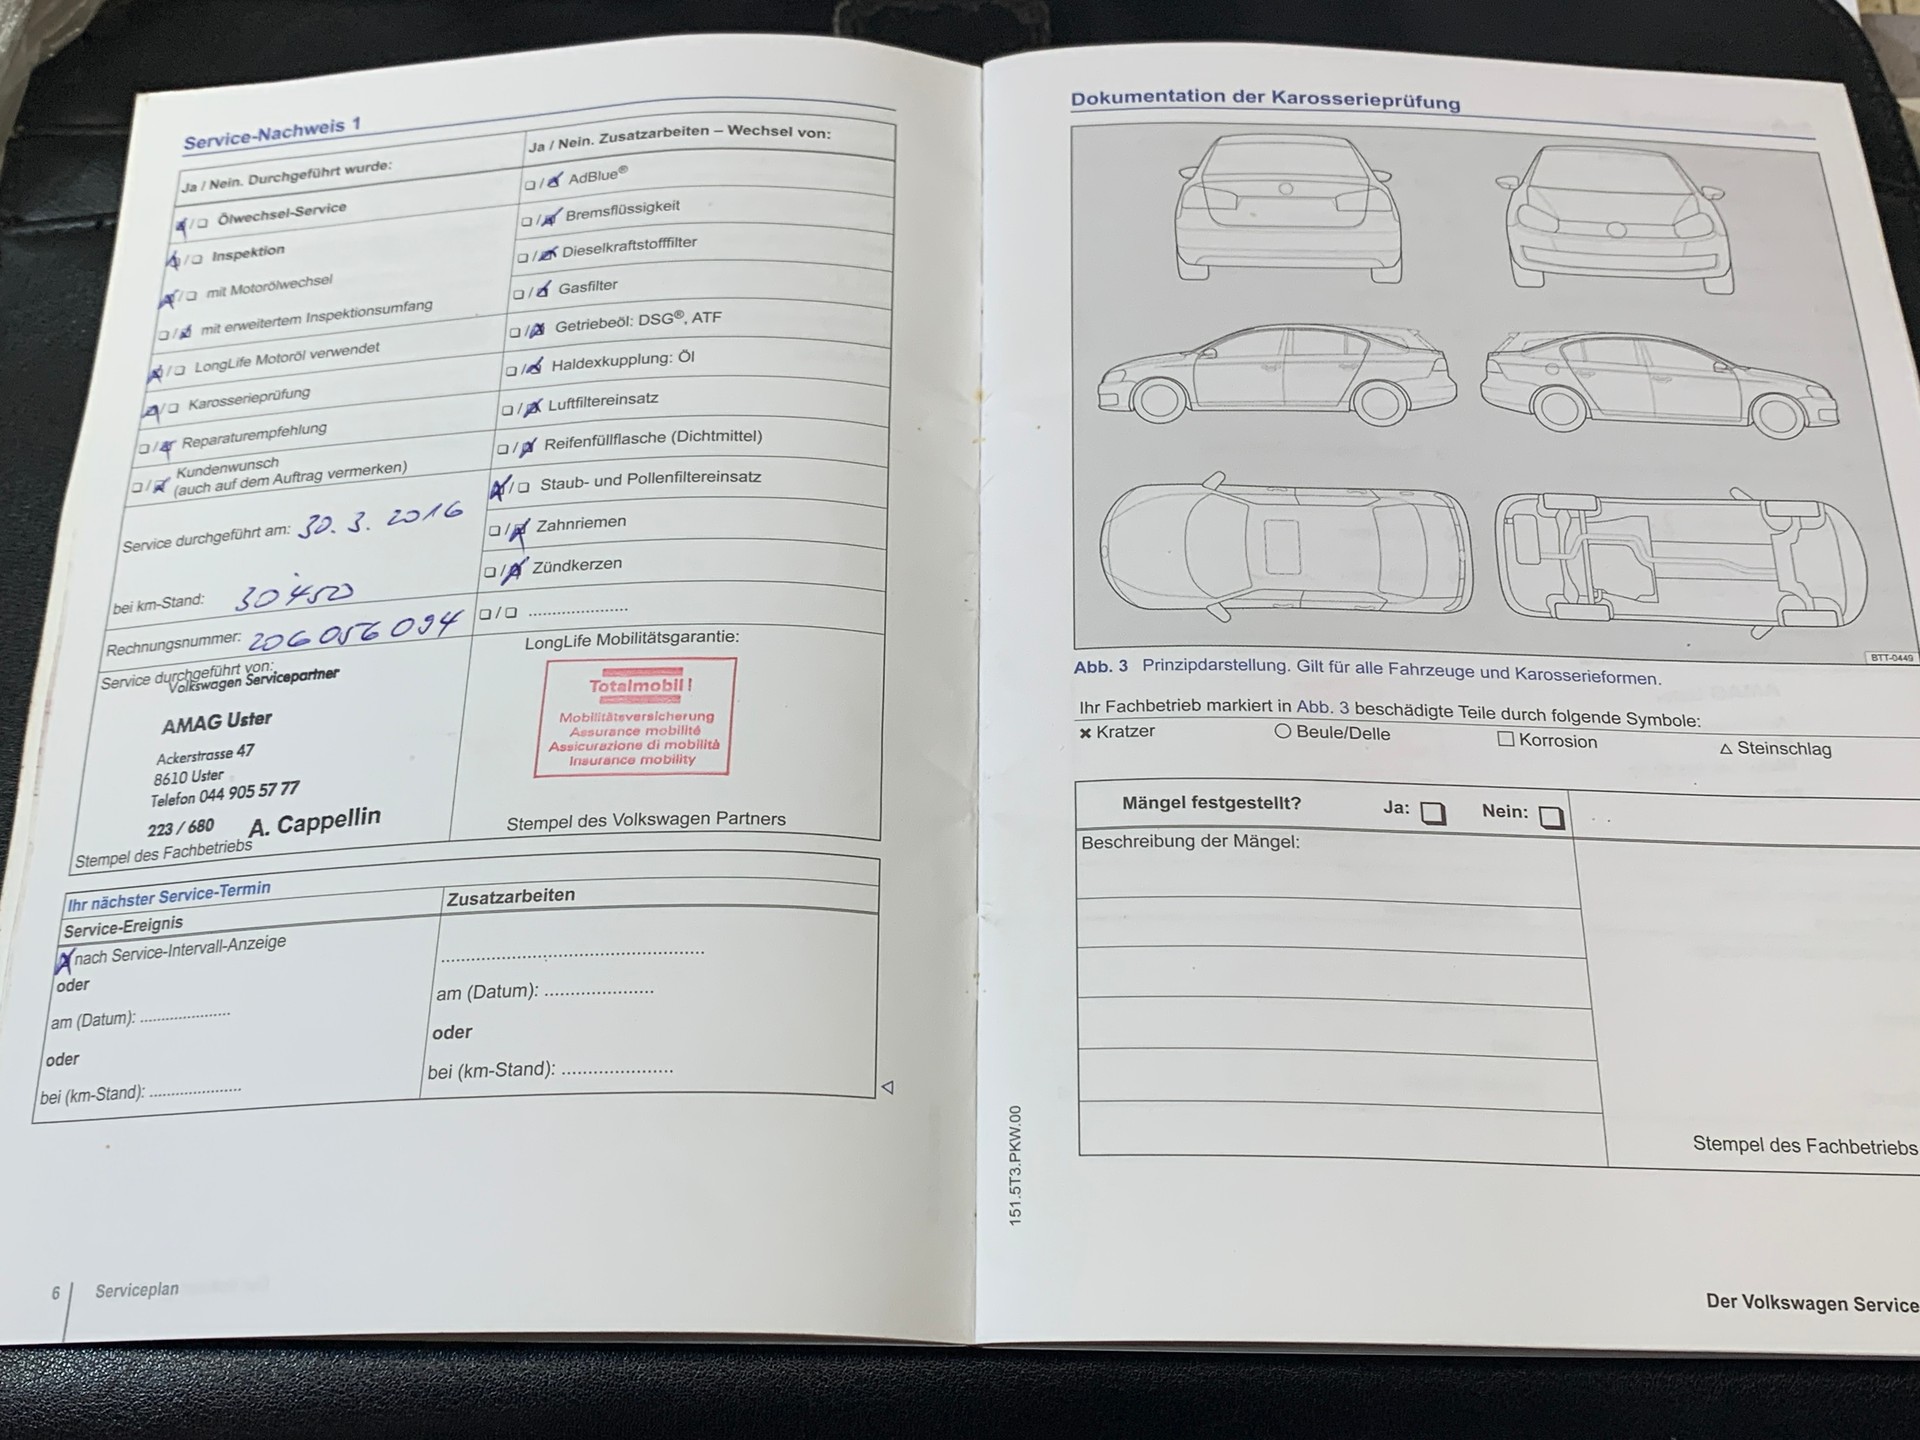 Service-Nachweis 1
Ja / Nein. Durchgeführt wurde:
Ölwechsel-Service
Inspektion
mit Motorölwechsel
mit erweitertem Inspektionsumfang
LongLife Motoröl verwendet
Karosserieprüfung
Reparaturempfehlung
Kundenwunsch
(auch auf dem Auftrag vermerken)
Service durchgeführt am: 30. 3. 2016
bei km-Stand: 30'450
Rechnungsnummer: 206056094
Service durchgeführt von:
Volkswagen Servicepartner
AMAG Uster
Ackerstrasse 47
8610 Uster
Telefon 044 905 57 77
223 / 680 A. Cappellin
Stempel des Fachbetriebs
Ja / Nein. Zusatzarbeiten – Wechsel von:
AdBlue®
Bremsflüssigkeit
Dieselkraftstofffilter
Gasfilter
Getriebeöl: DSG®, ATF
Haldexkupplung: Öl
Luftfiltereinsatz
Reifenfüllflasche (Dichtmittel)
Staub- und Pollenfiltereinsatz
Zahnriemen
Zündkerzen
LongLife Mobilitätsgarantie:
Totalmobil!
Mobilitätsversicherung
Assurance mobilité
Assicurazione di mobilità
Insurance mobility
Stempel des Volkswagen Partners
Ihr nächster Service-Termin
Service-Ereignis
nach Service-Intervall-Anzeige
oder
am (Datum): ....................
oder
bei (km-Stand): ....................
Zusatzarbeiten
am (Datum): ....................
oder
bei (km-Stand): ....................
6 Serviceplan
Dokumentation der Karosserieprüfung
BTT-0449
Abb. 3 Prinzipdarstellung. Gilt für alle Fahrzeuge und Karosserieformen.
Ihr Fachbetrieb markiert in Abb. 3 beschädigte Teile durch folgende Symbole:
× Kratzer ○ Beule/Delle □ Korrosion △ Steinschlag
Mängel festgestellt? Ja: □ Nein: □
Beschreibung der Mängel:
Stempel des Fachbetriebs
151.5T3.PKW.00
Der Volkswagen Service